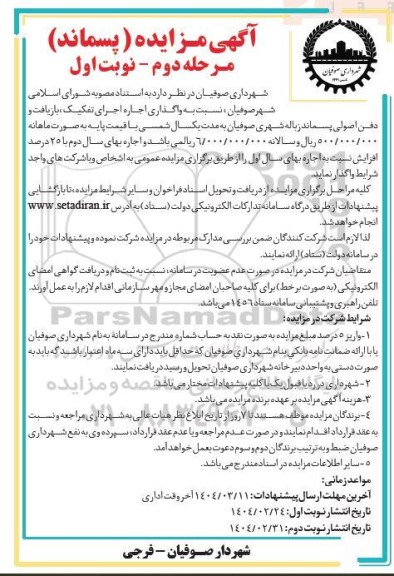 آگهی مزایده (پسماند)
مرحله دوم - نوبت اول
شهرداری صوفیان
شهرداری صوفیان در نظر دارد به استناد مصوبه شورای اسلامی
شهر صوفیان، نسبت به واگذاری اجاره اجرای تفکیک، بازیافت و
دفن اصولی پسماند زباله شهری صوفیان به مدت یکسال شمسی با قیمت پایه به صورت ماهانه
۵۰۰/۰۰۰/۰۰۰ ریال و سالانه ۶/۰۰۰/۰۰۰/۰۰۰ ریالمی باشد و اجاره بهای سال دوم با ۲۵ درصد
افزایش نسبت به اجاره بهای سال اول را از طریق برگزاری مزایده عمومی به اشخاص ویا شرکت های واجد
شرایط واگذار نماید.
کلیه مراحل برگزاری مزایده از دریافت و تحویل اسناد فراخوان و سایر شرایط مزایده، تا بازگشایی
پیشنهادات از طریق درگاه سامانه تدارکات الکترونیکی دولت (ستاد) به آدرس www.setadiran.ir
انجام خواهد شد.
لذا لازم است شرکت کنندگان ضمن بررسی مدارک مربوطه در مزایده شرکت نموده و پیشنهادات خود را
در سامانه دولت (ستاد) ارائه نمایند.
متقاضیان شرکت در مزایده در صورت عدم عضویت در سامانه، نسبت به ثبت نام و دریافت گواهی امضای
الکترونیکی (به صورت برخط) برای کلیه صاحبان امضای مجاز و مهر سازمانی اقدام لازم را به عمل آورند.
تلفن راهبری و پشتیبانی سامانه ستاد ۱۴۵۶ می باشد.
شرایط شرکت در مزایده:
۱-واریز ۵ درصد مبلغ مزایده به صورت نقد به حساب شماره مندرج در سامانه به نام شهرداری صوفیان
یا با ارائه ضمانت نامه بانکی بنام شهرداری صوفیان که حداقل باید دارای سه ماه اعتبار باشد که باید به
صورت دستی به واحد دبیرخانه شهرداری صوفیان تحویل و رسید دریافت نمایند.
۲- شهرداری در رد یا قبول یک یا کلیه پیشنهادات مختار می باشد.
۳-هزینه آگهی مزایده بر عهده برنده مزایده می باشد.
۴- برندگان مزایده موظف هستند تا ۷ روز از تاریخ ابلاغ نظر هیات عالی به شهرداری مراجعه و نسبت
به عقد قرارداد اقدام نمایند و در صورت عدم مراجعه و یا عدم عقد قرارداد، سپرده وی به نفع شهرداری
صوفیان ضبط و به ترتیب برندگان دوم و سوم دعوت بعمل خواهد آمد.
۵-سایر اطلاعات مزایده در اسناد مندرج می باشد.
مواعد زمانی:
آخرین مهلت ارسال پیشنهادات: ۱۴۰۴/۰۳/۱۱ آخر وقت اداری
تاریخ انتشار نوبت اول: ۱۴۰۴/۰۲/۲۴
تاریخ انتشار نوبت دوم: ۱۴۰۴/۰۲/۳۱
شهردار صوفیان - فرجی